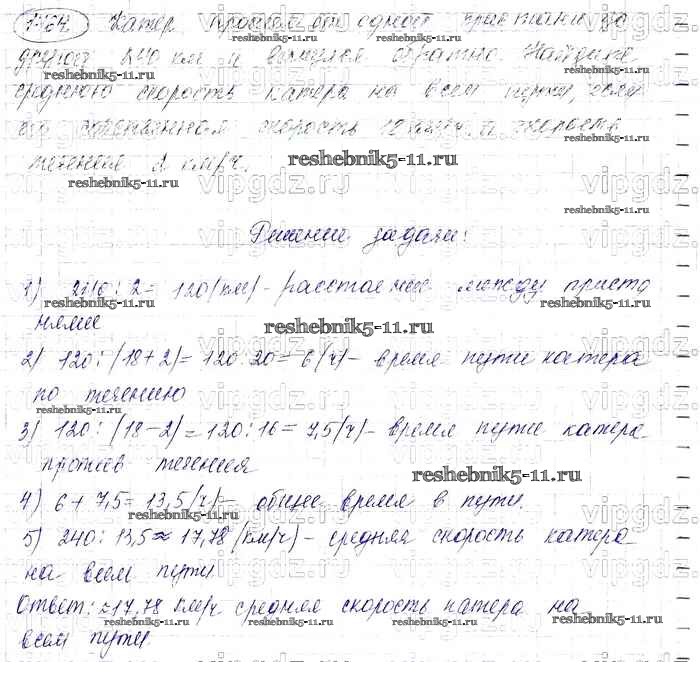 Катер прошел от одной пристани до
другой 240 км и вернулся обратно. Найдите
среднюю скорость катера на всем пути, если
его собственная скорость км/ч, а скорость
течения 2 км/ч.
Решение задачи:
1) 240 : 2 = 120 (км) - расстояние между приста
нями
2) 120 : (18 + 2) = 120 : 20 = 6 (ч) - время пути катера
по течению
3) 120 : (18 - 2) = 120 : 16 = 7,5 (ч) - время пути катера
против течения
4) 6 + 7,5 = 13,5 (ч) - общее время в пути.
5) 240 : 13,5 ≈ 17,78 (км/ч) - средняя скорость катера
на всем пути.
Ответ: ≈17,78 км/ч средняя скорость катера на
всем пути.
reshebnik5-11.ru
vipgdz.ru